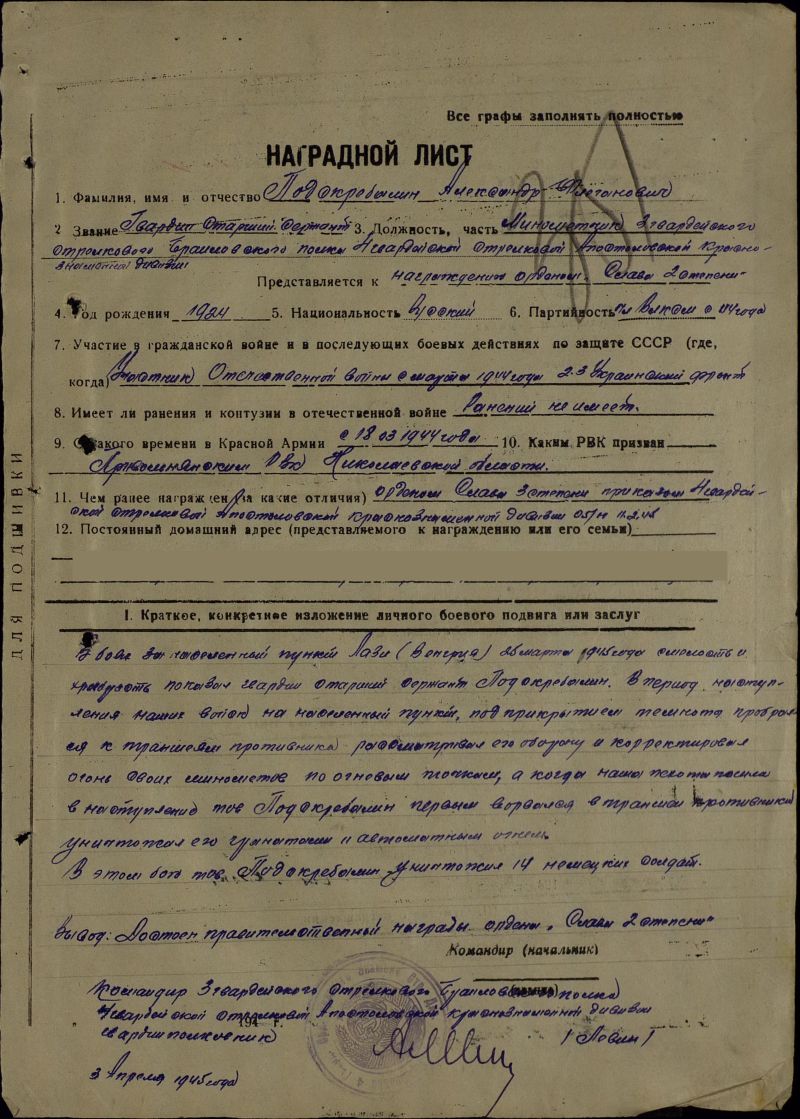 Все графы заполнять полностью
НАГРАДНОЙ ЛИСТ
1. Фамилия, имя и отчество Подскребалин Александр
2 Звание Гвардии старший сержант 3. Должность, часть Минометчик 3 гвардейского
стрелкового Браиловского полка 4 гвардейской стрелковой Апостоловской Красно-
знаменной дивизии
Представляется к награждению орденом „Слава 2 степени"
4. Год рождения 1924 5. Национальность Русский 6. Партийность ВЛКСМ с 44 года
7. Участие в гражданской войне и в последующих боевых действиях по защите СССР (где,
когда) Участник Отечественной войны с марта 1944 года 2.3 Украинский фронт
8. Имеет ли ранения и контузии в отечественной войне Ранений не имеет.
9. С какого времени в Красной Армии с 18 03 1944 года 10. Каким РВК призван
РВК Николаевской области.
11. Чем ранее награжден (за какие отличия) орденом Слава 3 степени приказом 4 гвардей-
ской стрелковой Апостоловской Краснознаменной дивизии 05/н
12. Постоянный домашний адрес (представляемого к награждению или его семьи)
ДЛЯ ПОДШИВКИ
I. Краткое, конкретное изложение личного боевого подвига или заслуг
В бою за населенный пункт Лази (Венгрия) 25 марта 1945 года смелость и
храбрость показал гвардии старший сержант Подскребалин. В период наступ-
ления наших войск на населенный пункт, под прикрытием темноты пробрал-
ся к траншеям противника рассматривал его оборону и корректировал
огонь своих минометов по огневым точкам, а когда наша пехота пошла
в наступление тов Подскребалин первым ворвался в траншеи противника
уничтожал его гранатами и автоматным огнем.
В этом бою тов. Подскребалин уничтожил 14 немецких солдат.
Вывод: Достоен правительственной награды ордена „Слава 2 степени"
Командир (начальник)
Командир 3 гвардейского стрелкового Браиловского полка
4 гвардейской стрелковой Апостоловской краснознаменной дивизии
194 г.
гвардии полковник / Ловин /
3 Апреля 1945 года